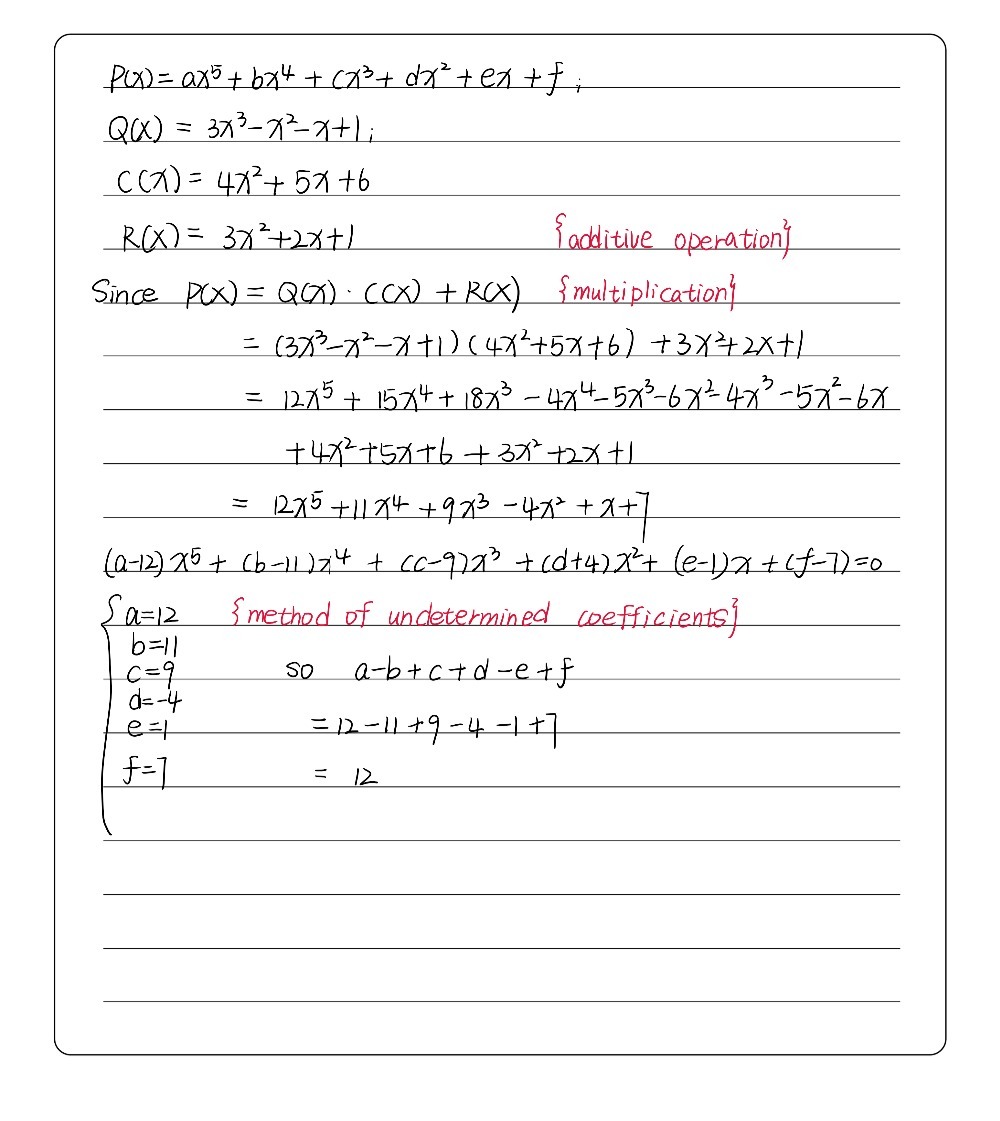 P(x)=ax⁵+bx⁴+cx³+dx²+ex+f;
Q(x) = 3x³-x²-x+1;
C(x)= 4x²+5x+6
R(x)= 3x²+2x+1 {additive operation}
Since P(x)=Q(x)·C(x)+R(x) {multiplication}
=(3x³-x²-x+1)(4x²+5x+6)+3x²+2x+1
= 12x⁵+15x⁴+18x³-4x⁴-5x³-6x²-4x³-5x²-6x
+4x²+5x+6+3x²+2x+1
= 12x⁵+11x⁴+9x³-4x²+x+7
(a-12)x⁵+(b-11)x⁴+(c-9)x³+(d+4)x²+(e-1)x+(f-7)=0
{a=12 {method of undetermined coefficients}
b=11
c=9 so a-b+c+d-e+f
d=-4
e=1 =12-11+9-4-1+7
f=7 = 12